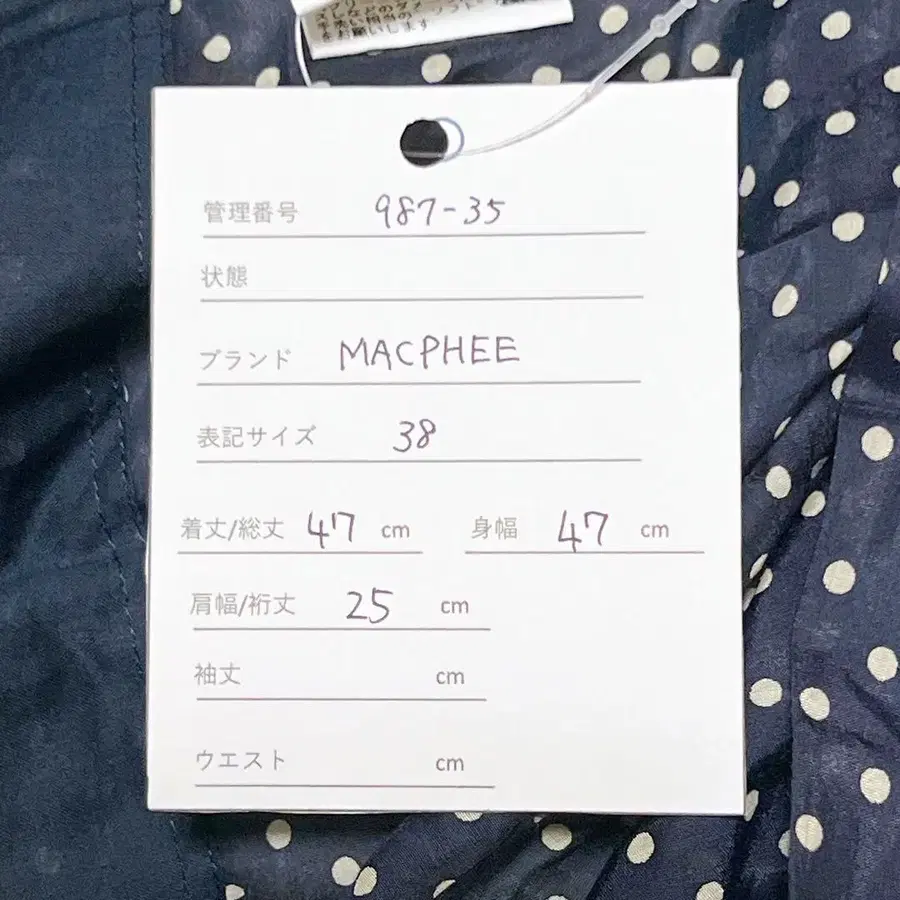 手洗い相当の
をお願いします
管理番号 987-35
状態
ブランド MACPHEE
表記サイズ 38
着丈/総丈 47 cm 身幅 47 cm
肩幅/裄丈 25 cm
袖丈 cm
ウエスト cm